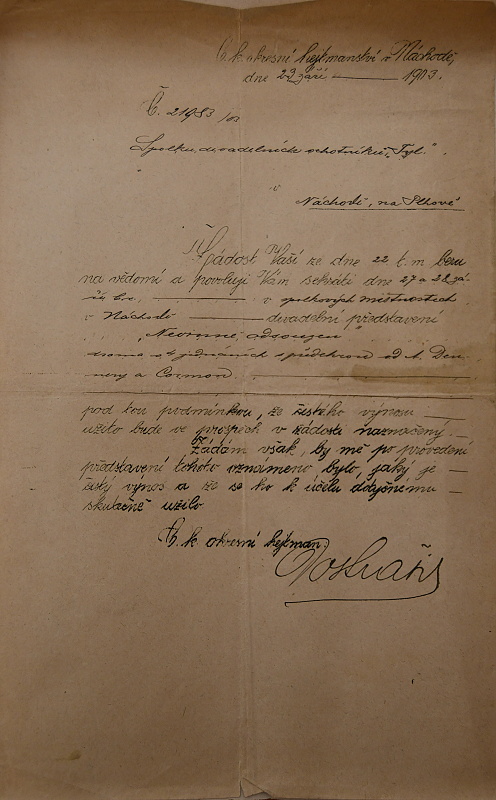 C. k. okresní hejtmanství v Náchodě,
dne 23 září 1903.
Č. 21983/03
Spolku divadelních ochotníků „Tyl".
v
Náchodě, na Plhově
Žádost Vaší ze dne 22 t. m. beru
na vědomí a povoluji Vám sehráti dne 27 a 28 zá-
ří br., v spolkových místnostech
v Náchodě divadelní představení
„Nevinně odsouzen"
drama v jednáních s předehrou od A. Den-
nery a Cormon.
pod tou podmínkou, že čistého výnosu
užito bude ve prospěch v žádosti naznačený.
Žádám však, by mě po provedení
představení tohoto oznámeno bylo, jaký je
čistý výnos a že se ho k účelu dotyčnému
skutečně užilo
C. k. okresní hejtman: